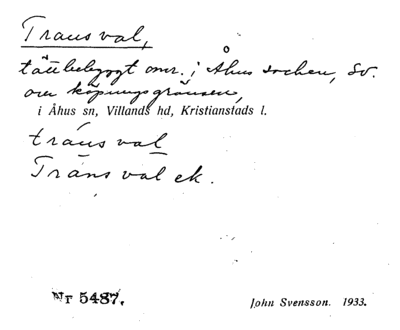 Transval,
tättbebyggt omr. i Åhus socken, sv.
om köpingsgränsen,
i Åhus sn, Villands hd, Kristianstads l.
tránsval
Transval ek.
Nr 5487.
John Svensson. 1933.